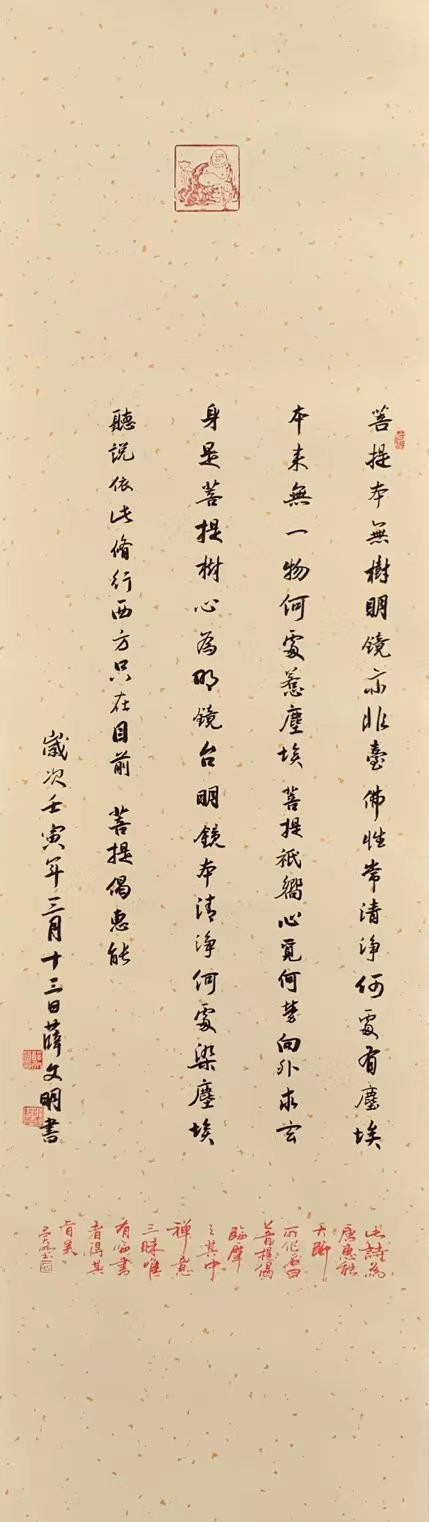 菩提本無樹明鏡亦非臺佛性常清淨何處有塵埃
本来無一物何處惹塵埃菩提祇嚮心覓何勞向外求玄
身是菩提樹心為明鏡台明鏡本清淨何處染塵埃
聽説依此脩行西方只在目前 菩提偈惠能
歲次壬寅年三月十三日薛文明書
此詩為
唐惠能
大師
所作名曰
菩提偈
臨摩
之其中
禪意
三昧唯
有心書
者得其
旨矣